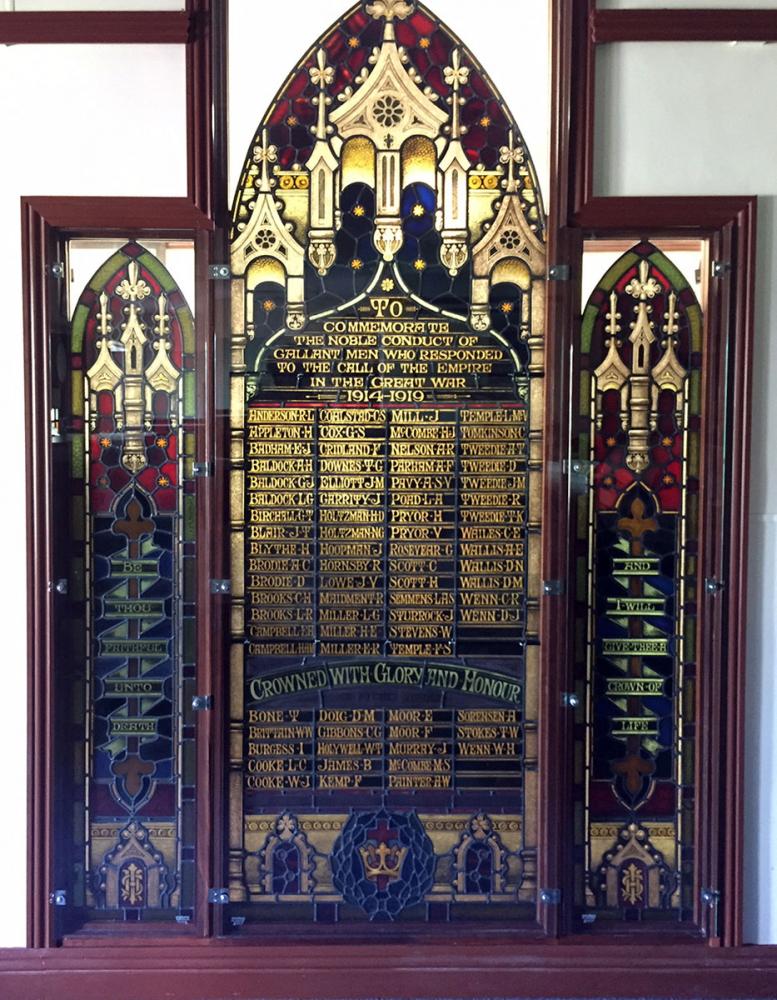 TO
COMMEMORATE
THE NOBLE CONDUCT OF
GALLANT MEN WHO RESPONDED
TO THE CALL OF THE EMPIRE
IN THE GREAT WAR
1914-1919
ANDERSON·R·L COALSTAD·C·S MILL·J TEMPLE·L·McV
APPLETON·H COX·G·S McCOMBE·H·J TOMKINSON·C
BADHAM·E·J CRIDLAND·F NELSON·A·R TWEEDIE·A·T
BALDOCK·A·H DOWNES·T·G PARHAM·A·F TWEEDIE·D
BALDOCK·G·J ELLIOTT·J·M PAVY·A·S·V TWEEDIE·J·M
BALDOCK·L·G GARRITY·J POAD·L·A TWEEDIE·R
BIRCHALL·G·T HOLTZMAN·H·D PRYOR·H TWEEDIE·T·K
BLAIR·J·T HOLTZMAN·N·G PRYOR·V WAILES·C·E
BLYTHE·H HOOPMAN·J ROSEVEAR·G WALLIS·A·E
BRODIE·A·C HORNSBY·R SCOTT·C WALLIS·D·N
BRODIE·D LOWE·J·V SCOTT·H WALLIS·D·M
BROOKS·C·H MAIDMENT·R SEMMENS·L·A·S WENN·C·R
BROOKS·L·R MILLER·L·G STURROCK·J WENN·D·J
CAMPBELL MILLER·H·E STEVENS·W
CAMPBELL MILLER·E·R TEMPLE·F·S
CROWNED WITH GLORY AND HONOUR
BONE·T DOIG·D·M MOOR·E SORENSEN·A
BRITTAIN·W·W GIBBONS·C·G MOOR·F STOKES·T·W
BURGESS·I HOLYWELL·W·T MURRAY·J WENN·W·H
COOKE·L·C JAMES·B McCOMBE·M·S
COOKE·W·J KEMP·F PAINTER·A·W
BE
THOU
FAITHFUL
UNTO
DEATH
AND
I·WILL
GIVE·THEE·A
CROWN·OF
LIFE
IHS
IHS